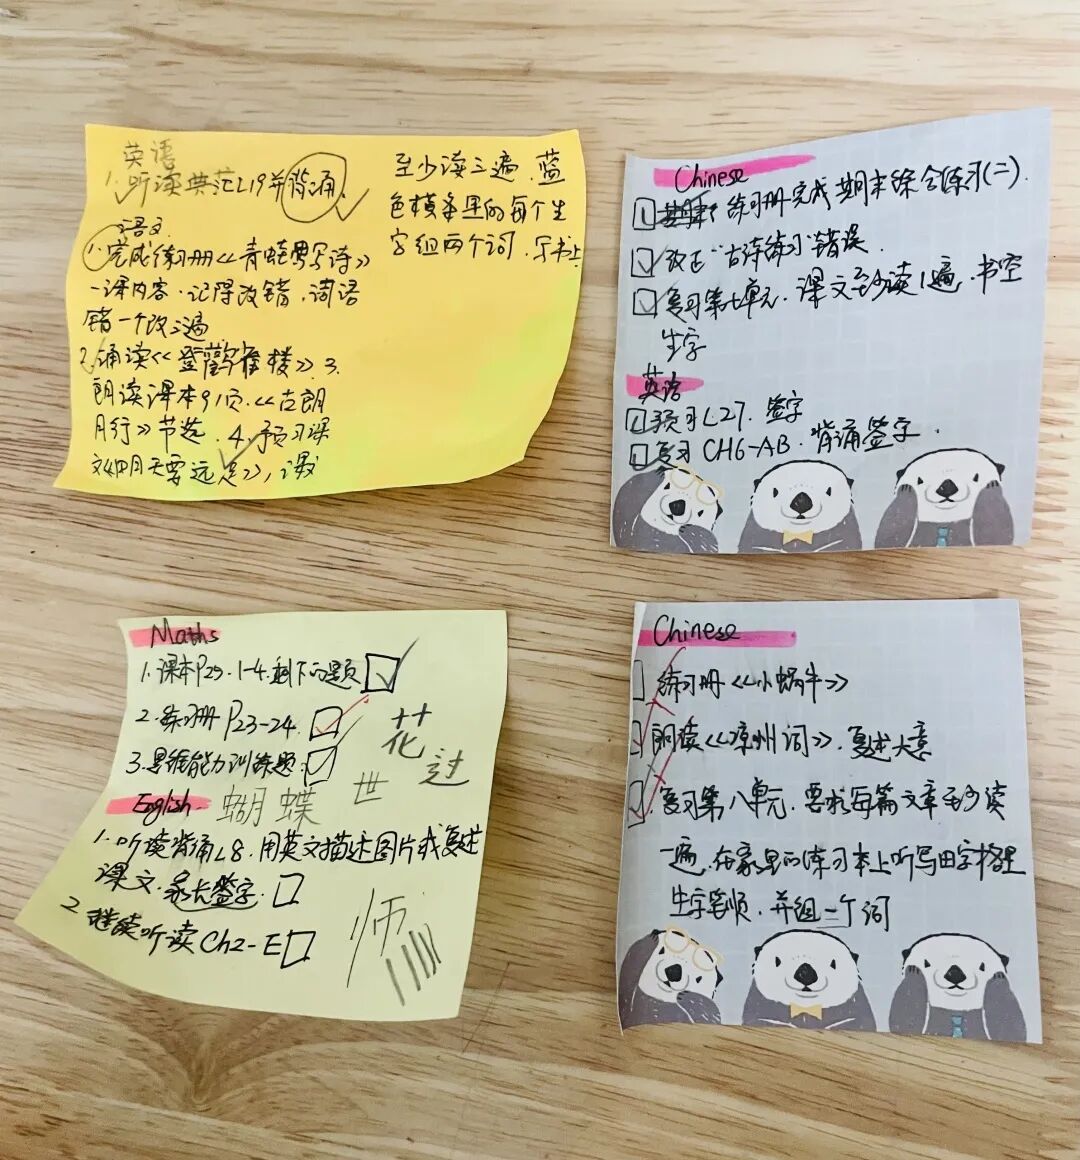 英语
1. 听读典范L19并背诵
语文
1. 完成练习册《青蛙写诗》
一课内容，记得改错，词语
错一个改三遍
2. 诵读《登鹳雀楼》3.
朗读课本91页《古朗
月行》节选. 4. 预习课
文《明天要远足》，课
至少读三遍，蓝
色横条里的每个生
字组两个词，写书上
Chinese
练习册完成期末综合练习(二).
改正“古诗练习”错误
复习第七单元，课文至少读1遍，书空
生字
英语
预习L27. 签字
复习CH6-AB. 背诵签字.
Maths
1. 课本P25. 1-4. 剩下的题
2. 练习册 P23-24.
3. 思维能力训练题
English.
蝴蝶 世 花 过
1. 听读背诵L8，用英文描述图片或复述
课文. 家长签字.
2. 继续听读Ch2-E
师
Chinese
练习册《小蜗牛》
朗读《凉州词》，复述大意
复习第八单元，要求每篇文章至少读
一遍，在家里的练习本上听写田字格里
生字笔顺，并组一个词